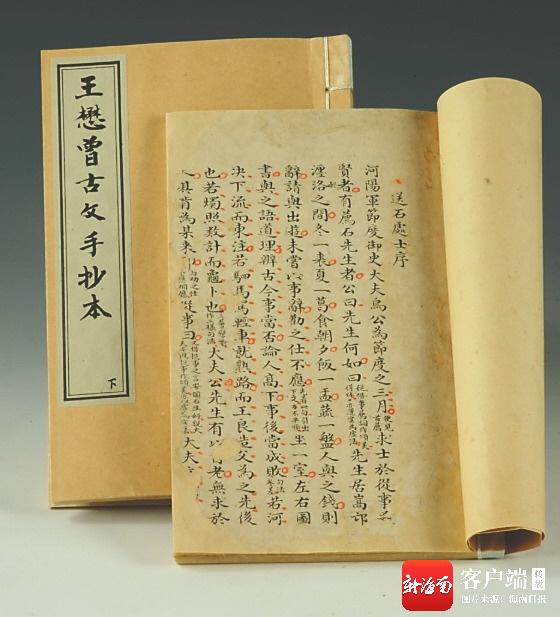 王懋曾古文手抄本
下
送石處士序
河陽軍節度御史大夫烏公為節度之三月求士於從事之
賢者有薦石先生者公曰先生何如曰先生居嵩邙
瀍洛之間冬一裘夏一葛食朝夕飯一盂蔬一盤人與之錢則
辭請與出遊未嘗以事辭勸之仕不應坐一室左右圖
書與之語道理辨古今事當否論人高下事後當成敗若河
決下流而東注若駟馬駕輕車就熟路而王良造父為之先後
也若燭照數計而龜卜也大夫公先生有以老無求於
人俱肯為某來從事曰大夫
新海南 客户端
图片来源：海南日报